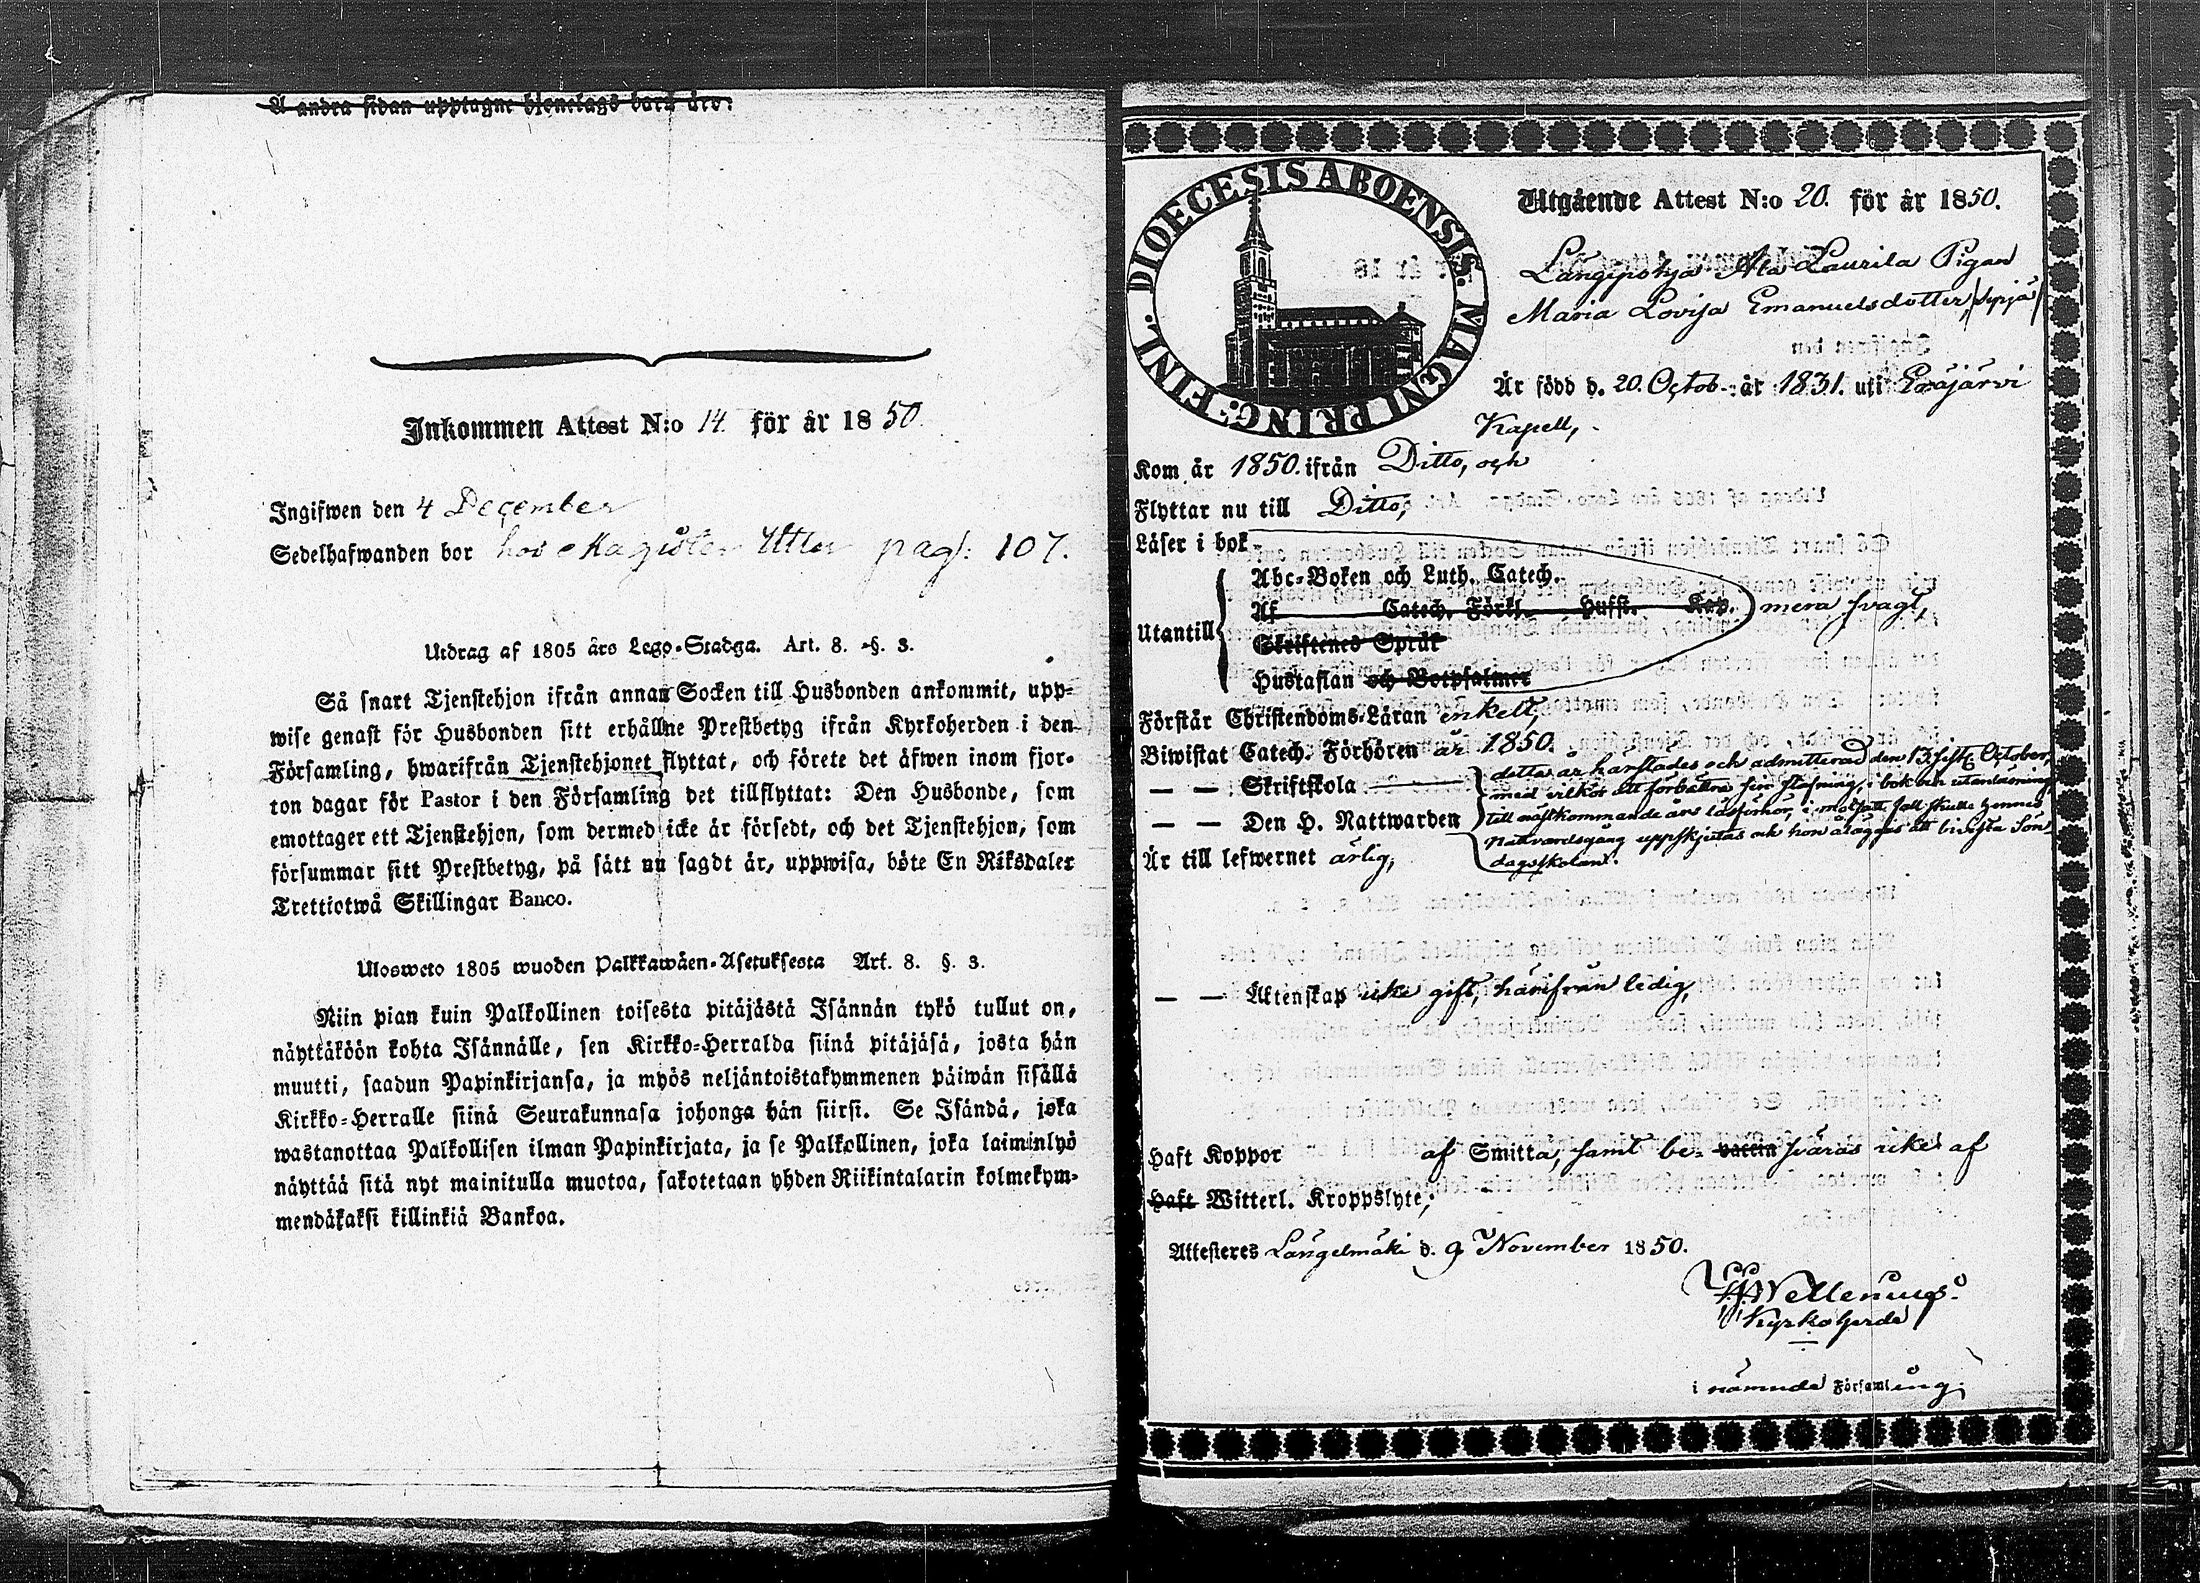 A andra sidan upptagne hjonelags barn äro:
Inkommen Attest N:o 14. för år 1850.
Ingifwen den 4 December
Sedelhafwanden bor hos Magister pag: 107.
Utdrag af 1805 års Lego-Stadga. Art. 8. §. 3.
Så snart Tjenstehjon ifrån annan Socken till Husbonden ankommit, upp-
wise genast för Husbonden sitt erhållne Prestbetyg ifrån Kyrkoherden i den
Församling, hwarifrån Tjenstehjonet flyttat, och förete det äfwen inom fjor-
ton dagar för Pastor i den Församling det tillflyttat: Den Husbonde, som
emottager ett Tjenstehjon, som dermed icke är försedt, och det Tjenstehjon, som
försummar sitt Prestbetyg, på sätt nu sagdt är, uppwisa, böte En Riksdaler
Trettiotwå Skillingar Banco.
Ulosweto 1805 wuoden Palkkawäen-Asetuksesta Art. 8. §. 3.
Niin pian kuin Palkollinen toisesta pitäjästä Isännän tykö tullut on,
näyttäköön kohta Isännälle, sen Kirkko-Herralda siinä pitäjäsä, josta hän
muutti, saadun Papinkirjansa, ja myös neljäntoistakymmenen päiwän sisällä
Kirkko-Herralle siinä Seurakunnasa johonga hän siirsi. Se Isändä, joka
wastanottaa Palkollisen ilman Papinkirjata, ja se Palkollinen, joka laiminlyö
näyttää sitä nyt mainitulla muotoa, sakotetaan yhden Riikintalarin kolmekym-
mendäkaksi killinkiä Bankoa.
DIOECESIS ABOENSIS. MAGNI PRINC: FINL.
Utgående Attest N:o 20. för år 1850.
Längipohja Ala Laurila Pigan
Maria Lovisa Emanuelsdotter,
Är född d. 20. Octob. år 1831. uti Eräjärvi
Kapell,
Kom år 1850. ifrån Ditto, och
Flyttar nu till Ditto,
Läser i bok
Abc-Boken och Luth. Catech.
Af Catech. Förkl. Hufst. Kap. mera svagt,
Utantill
Skriftenes Språk
Hustaflan och Botpsalmer
Förstår Christendoms-Läran enkelt,
Biwistat Catech. Förhören år 1850.
detta år härstädes och admitterad den 13. sistl. October,
— — Skriftskola
med vilkor att förbättra sin stafning, i bok och utanläsning,
till nästkommande års läsförhör, i motsatt fall skulle hennes
— — Den H. Nattwarden
nattvardsgång uppskjutas och hon åläggas att bivista Sön-
dagsskolan.
Är till lefwernet ärlig,
— — Äktenskap icke gift, härifrån ledig,
Haft Koppor af Smitta, samt be- vaccin sväras icke af
Haft Witterl. Kroppslyte;
Attesteres Längelmäki d. 9 November 1850.
Wellenius.
Kyrkoherde
i nämnde Församling.